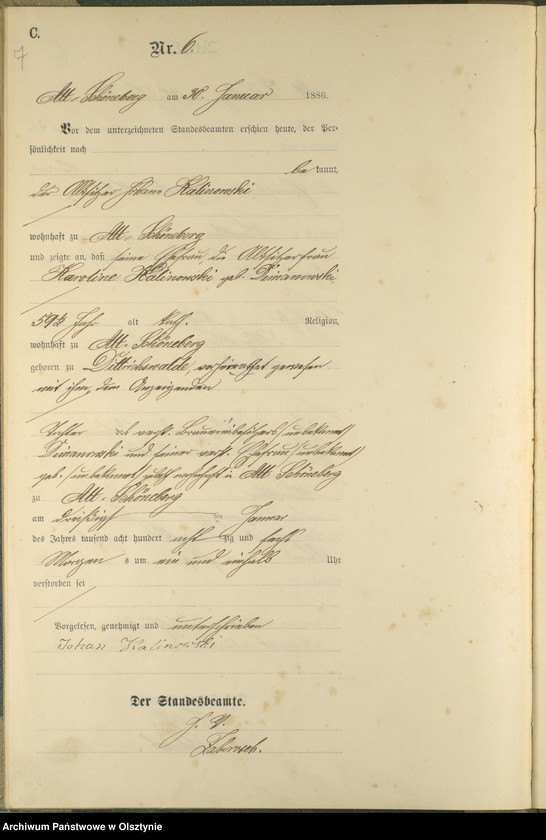 C.
7
Nr. 6.
Alt-Schöneberg am 30. Januar 1886.
Vor dem unterzeichneten Standesbeamten erschien heute, der Per-
sönlichkeit nach
be kannt,
der Altsitzer Johann Kalinowski
wohnhaft zu Alt-Schöneberg
und zeigte an, daß seine Ehefrau die Altsitzerfrau
Karoline Kalinowski geb.
59½ Jahr alt kath. Religion,
wohnhaft zu Alt-Schöneberg
geboren zu Dittrichswalde, verheirathet gewesen
mit ihm, dem Anzeigenden
Tochter des verst. (unbekannt)
und seiner verst. Ehefrau (unbekannt)
geb. (unbekannt) wohnhaft in Alt Schöneberg
zu Alt-Schöneberg
am dreißigst ten Januar
des Jahres tausend acht hundert acht zig und sechs
Morgen s um ein und einhalb Uhr
verstorben sei
Vorgelesen, genehmigt und unterschrieben
Johan Kalinowski
Der Standesbeamte.
J. V.
Archiwum Państwowe w Olsztynie